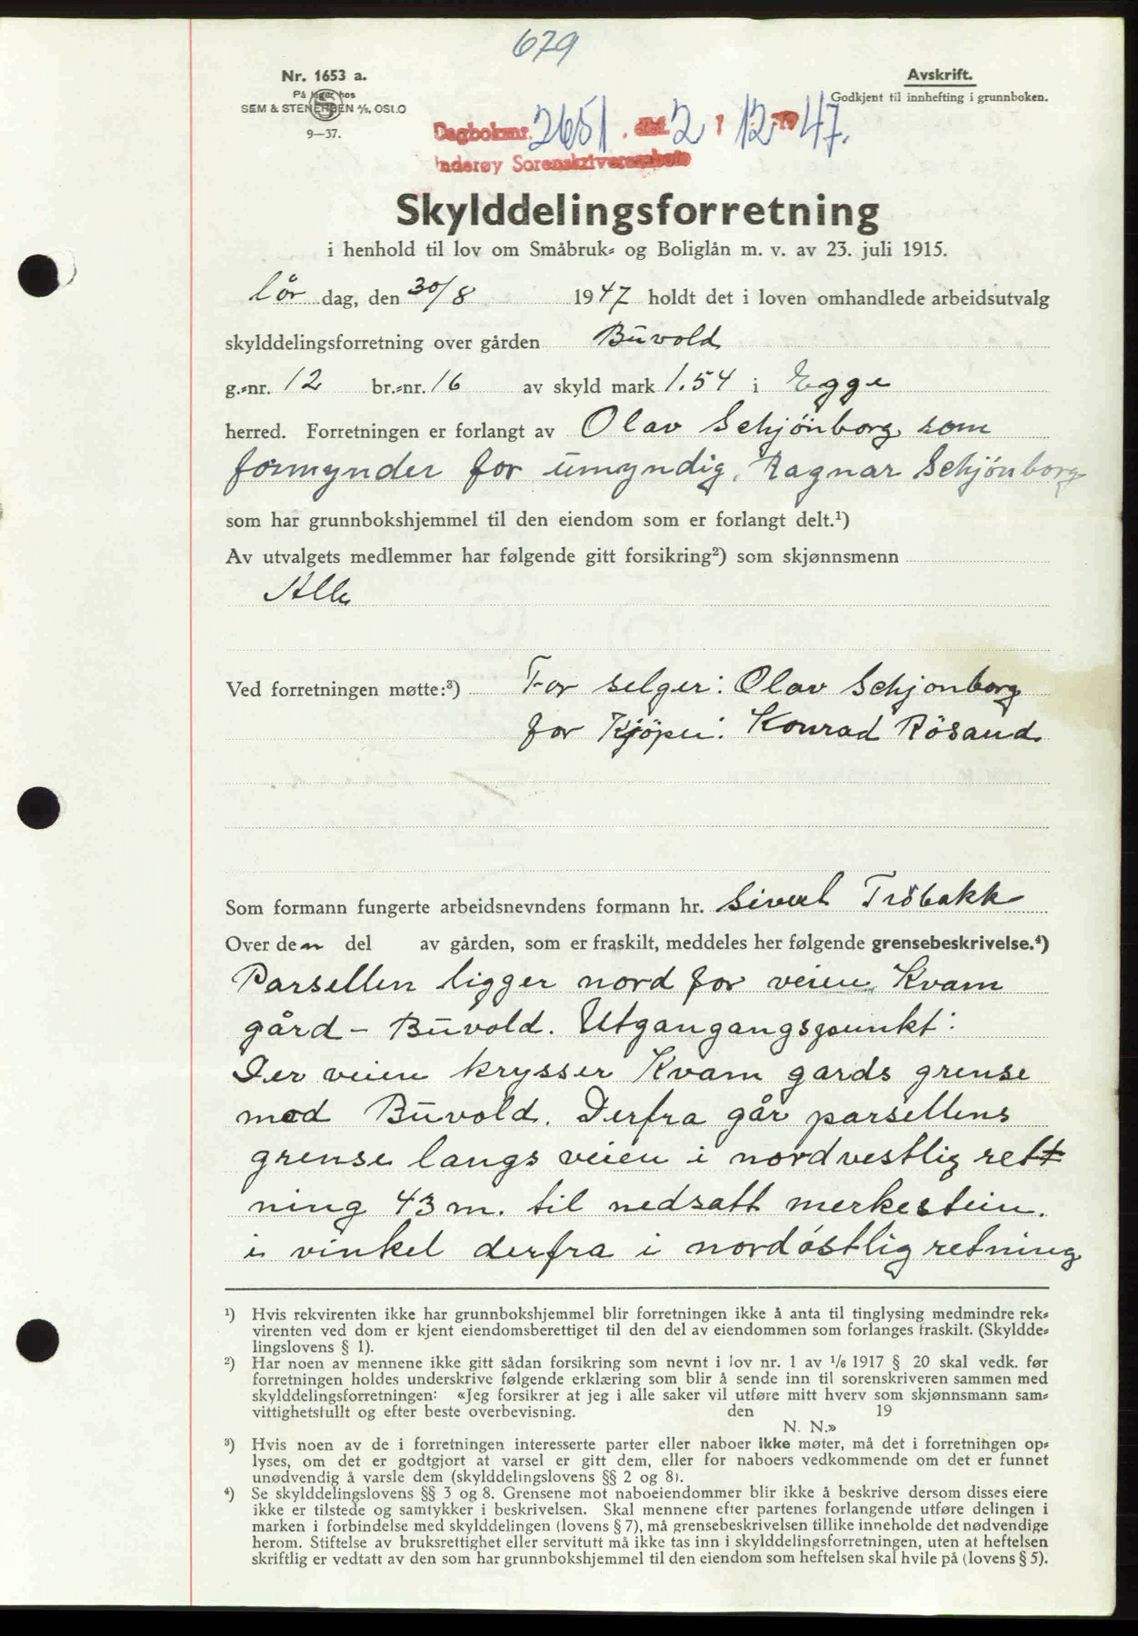 679
Nr. 1653 a.
På lager hos
SEM & STENERSEN A/S, OSLO
9—37.
Avskrift.
Godkjent til innhefting i grunnboken.
Dagboknr. 2651. 2/12 1947.
Inderøy Sorenskriverembete
Skylddelingsforretning
i henhold til lov om Småbruk- og Boliglån m. v. av 23. juli 1915.
lör dag, den 30/8 1947 holdt det i loven omhandlede arbeidsutvalg
skylddelingsforretning over gården Būvold
g.-nr. 12 br.-nr. 16 av skyld mark 1.54 i Egge
herred. Forretningen er forlangt av Olav Schjönborg som
formynder for ūmyndig, Ragnar Schjönborg
som har grunnbokshjemmel til den eiendom som er forlangt delt.¹)
Av utvalgets medlemmer har følgende gitt forsikring²) som skjønnsmenn
Alle
Ved forretningen møtte:³) For selger: Olav Schjonborg
for Kjöper: Konrad Rösand
Som formann fungerte arbeidsnevndens formann hr. Sivert Tröbakk
Over den del av gården, som er fraskilt, meddeles her følgende grensebeskrivelse.⁴)
Parsellen ligger nord for veien Kvam
gård - Būvold. Utgangangspunkt:
Der veien krysser Kvam gards grense
med Būvold. Derfra går parsellens
grense langs veien i nordvestlig rett
ning 43 m. til nedsatt merkestein.
i vinkel derfra i nordöstlig retning
¹) Hvis rekvirenten ikke har grunnbokshjemmel blir forretningen ikke å anta til tinglysing medmindre rek-
virenten ved dom er kjent eiendomsberettiget til den del av eiendommen som forlanges fraskilt. (Skyldde-
lingslovens § 1).
²) Har noen av mennene ikke gitt sådan forsikring som nevnt i lov nr. 1 av 1/6 1917 § 20 skal vedk. før
forretningen holdes underskrive følgende erklæring som blir å sende inn til sorenskriveren sammen med
skylddelingsforretningen: «Jeg forsikrer at jeg i alle saker vil utføre mitt hverv som skjønnsmann sam-
vittighetsfullt og efter beste overbevisning. den 19
N. N.»
³) Hvis noen av de i forretningen interesserte parter eller naboer ikke møter, må det i forretningen op-
lyses, om det er godtgjort at varsel er gitt dem, eller for naboers vedkommende om det er funnet
unødvendig å varsle dem (skylddelingslovens §§ 2 og 8).
⁴) Se skylddelingslovens §§ 3 og 8. Grensene mot naboeiendommer blir ikke å beskrive dersom disses eiere
ikke er tilstede og samtykker i beskrivelsen. Skal mennene efter partenes forlangende utføre delingen i
marken i forbindelse med skylddelingen (lovens § 7), må grensebeskrivelsen tillike inneholde det nødvendige
herom. Stiftelse av bruksrettighet eller servitutt må ikke tas inn i skylddelingsforretningen, uten at heftelsen
skriftlig er vedtatt av den som har grunnbokshjemmel til den eiendom som heftelsen skal hvile på (lovens § 5).